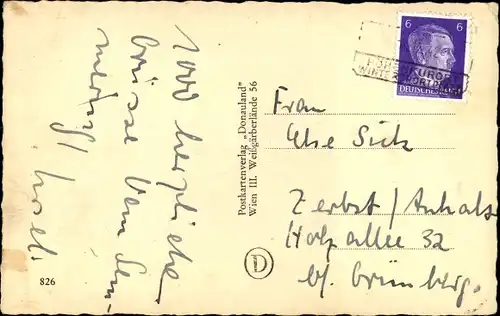 1000 herzliche
Grüsse vom Sem-
mering!
Postkartenverlag „Donauland"
Wien III. Weißgärberlände 56
D
826
6 6
DEUTSCHES REICH
Frau
Else
Zerbst/Anhalt
Holzallee 32
b/. Grünberg.